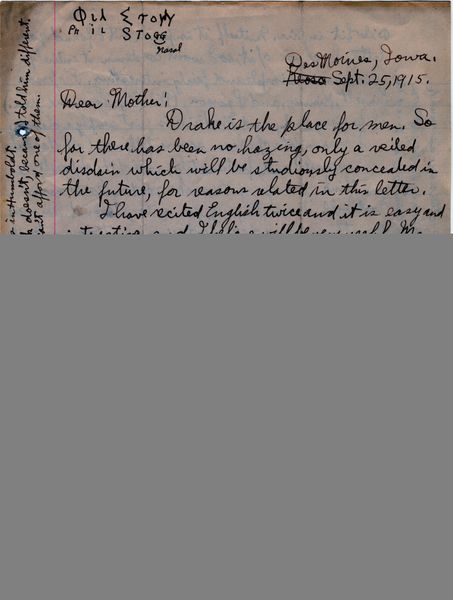 Φιλ Στογγ
Ph il Stogg
nasal
Des Moines, Iowa.
Sept. 25, 1915.
Dear Mother:
Drake is the place for men. So
far there has been no hazing, only a veiled
disdain which will be studiously concealed in
the future, for reasons related in this letter.
I have recited English twice and it is easy and
and I believe will be very useful.
in Humboldt.
doesn't, because I told him different.
afford one of them.